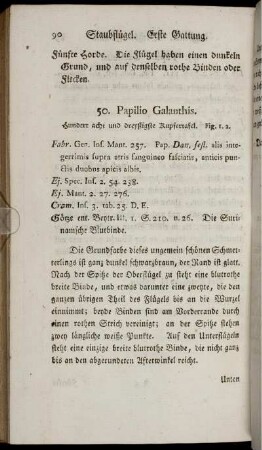 90 Staubflügel. Erste Gattung.
Fünfte Horde. Die Flügel haben einen dunkeln
Grund, und auf denselben rothe Binden oder
Flecken.
50. Papilio Galanthis.
Hundert acht und dreyßigste Kupfertafel. Fig. 1. 2.
Fabr. Gen. Ins. Mant. 257. Pap. Dan. fest. alis inte-
gerrimis supra atris sanguineo fasciatis, anticis pun-
ctis duobus apicis albis.
Ej. Spec. Ins. 2. 54. 238.
Ej. Mant. 2. 27. 276.
Cram. Ins. 3. tab. 25. D. E.
Götze ent. Beytr. III. 1. S. 210. n. 26. Die Suri-
namsche Blutbinde.
Die Grundfarbe dieses ungemein schönen Schmet-
terlings ist ganz dunkel schwarzbraun, der Rand ist glatt.
Nach der Spitze der Oberflügel zu steht eine blutrothe
breite Binde, und etwas darunter eine zweyte, die den
ganzen übrigen Theil des Flügels bis an die Wurzel
einnimmt; beyde Binden sind am Vorderrande durch
einen rothen Strich vereinigt; an der Spitze stehen
zwey längliche weiße Punkte. Auf den Unterflügeln
steht eine einzige breite blutrothe Binde, die nicht ganz
bis an den abgerundeten Afterwinkel reicht.
Unten